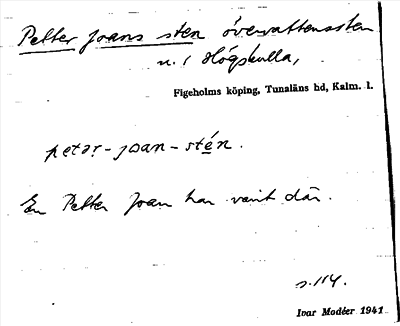 Petter Joans sten övervattenssten
n. / Högskulla,
Figeholms köping, Tunaläns hd, Kalm. l.
petər-joan-stén.
En Petter Joan har varit där.
s. 114.
Ivar Modéer 1941